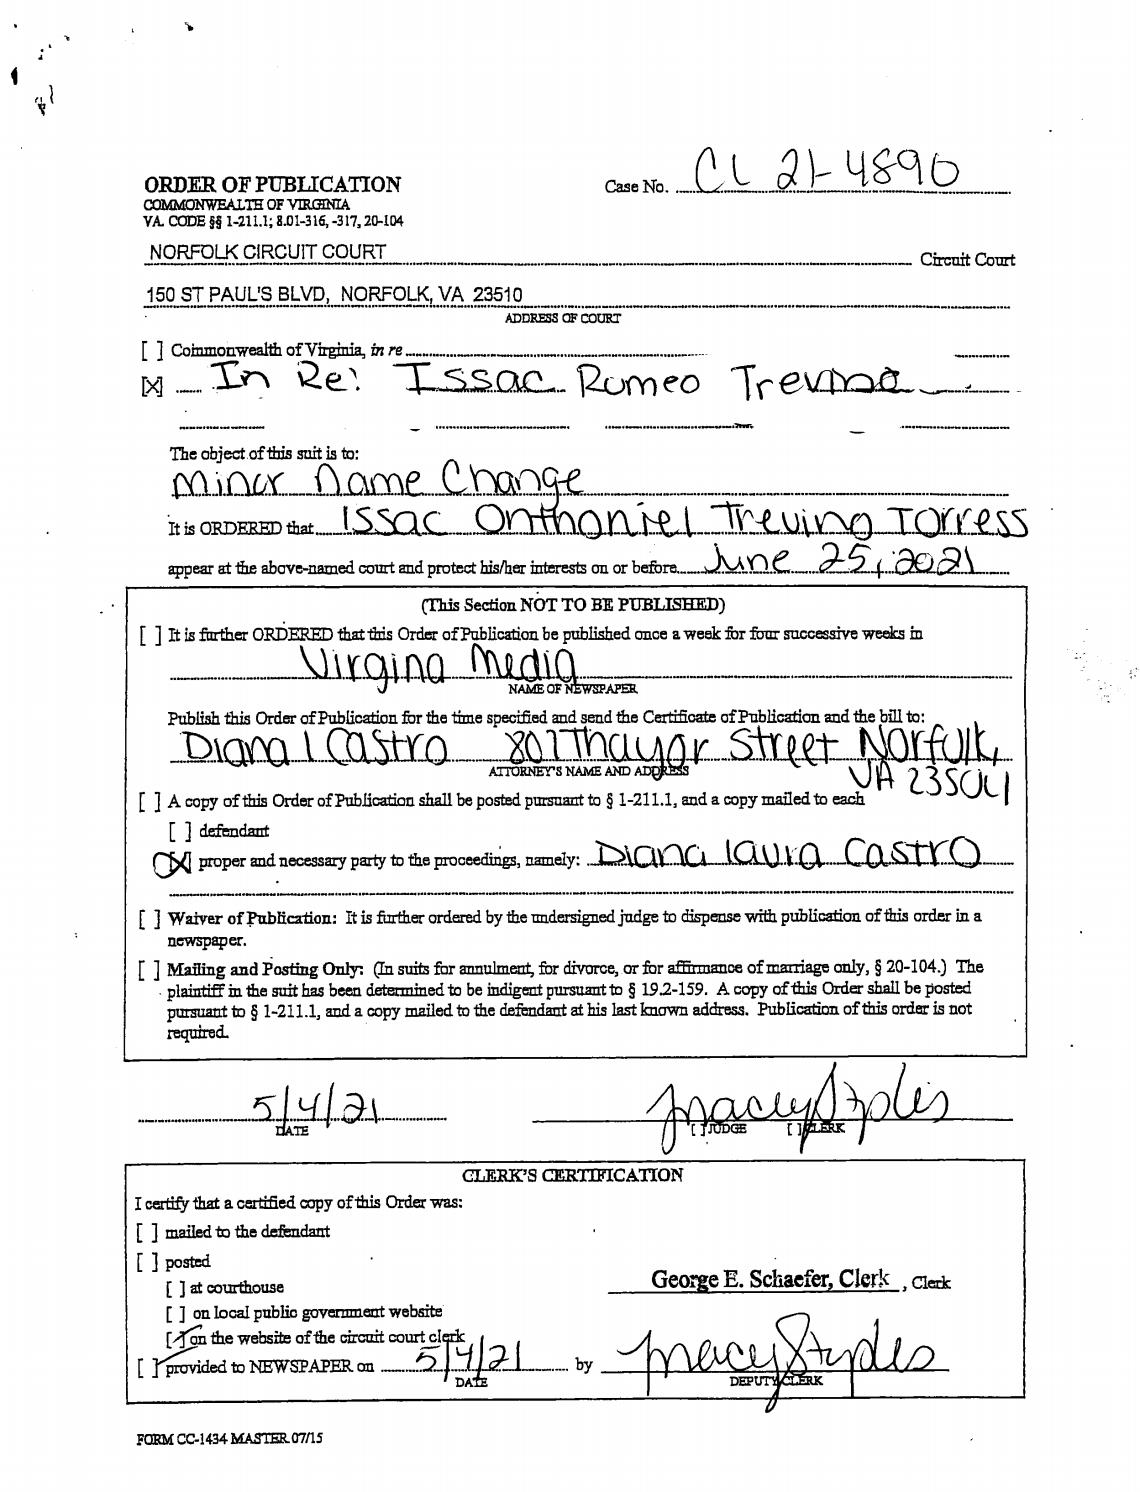 ORDER OF PUBLICATION
COMMONWEALTH OF VIRGINIA
VA. CODE §§ 1-211.1; 8.01-316, -317, 20-104
Case No. CL 21-4890
NORFOLK CIRCUIT COURT Circuit Court
150 ST PAUL'S BLVD, NORFOLK, VA 23510
ADDRESS OF COURT
[ ] Commonwealth of Virginia, in re
[X] In Re: Issac Romeo Trevino
The object of this suit is to:
Minor Name Change
It is ORDERED that Issac Onthoniel Trevino Torress
appear at the above-named court and protect his/her interests on or before June 25, 2021
(This Section NOT TO BE PUBLISHED)
[ ] It is further ORDERED that this Order of Publication be published once a week for four successive weeks in
Virgina Media
NAME OF NEWSPAPER
Publish this Order of Publication for the time specified and send the Certificate of Publication and the bill to:
Diana l Castro 807 Thayor Street Norfolk,
ATTORNEY'S NAME AND ADDRESS
VA 23504
[ ] A copy of this Order of Publication shall be posted pursuant to § 1-211.1, and a copy mailed to each
[ ] defendant
[X] proper and necessary party to the proceedings, namely: Diana laura Castro
[ ] Waiver of Publication: It is further ordered by the undersigned judge to dispense with publication of this order in a
newspaper.
[ ] Mailing and Posting Only: (In suits for annulment, for divorce, or for affirmance of marriage only, § 20-104.) The
plaintiff in the suit has been determined to be indigent pursuant to § 19.2-159. A copy of this Order shall be posted
pursuant to § 1-211.1, and a copy mailed to the defendant at his last known address. Publication of this order is not
required.
5/4/21
DATE
[ ] JUDGE [ ] CLERK
CLERK'S CERTIFICATION
I certify that a certified copy of this Order was:
[ ] mailed to the defendant
[ ] posted
[ ] at courthouse
George E. Schaefer, Clerk , Clerk
[ ] on local public government website
[✓] on the website of the circuit court clerk
[ ] provided to NEWSPAPER on 5/4/21 by
DATE
DEPUTY CLERK
FORM CC-1434 MASTER 07/15